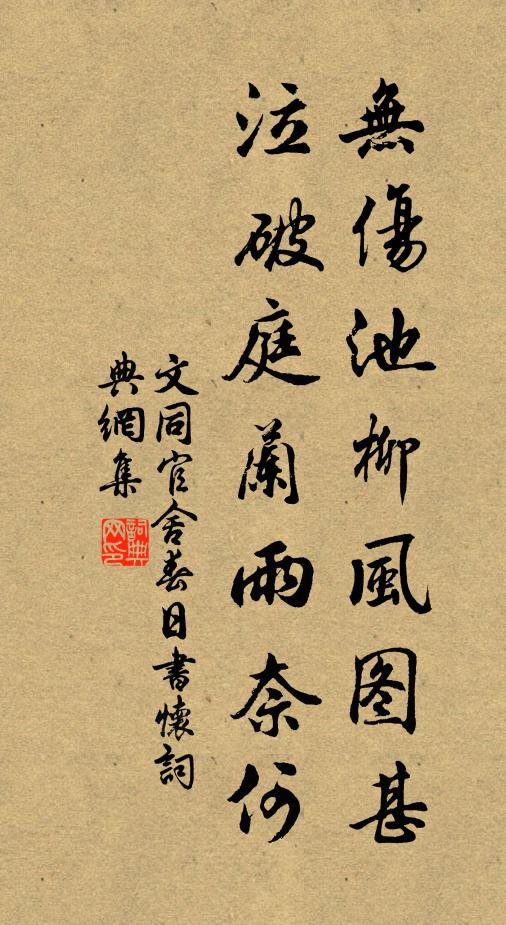 無傷池柳風图甚
泣破庭蘭雨奈何
文同官舍春日書懷詞
典網集
詞典网印